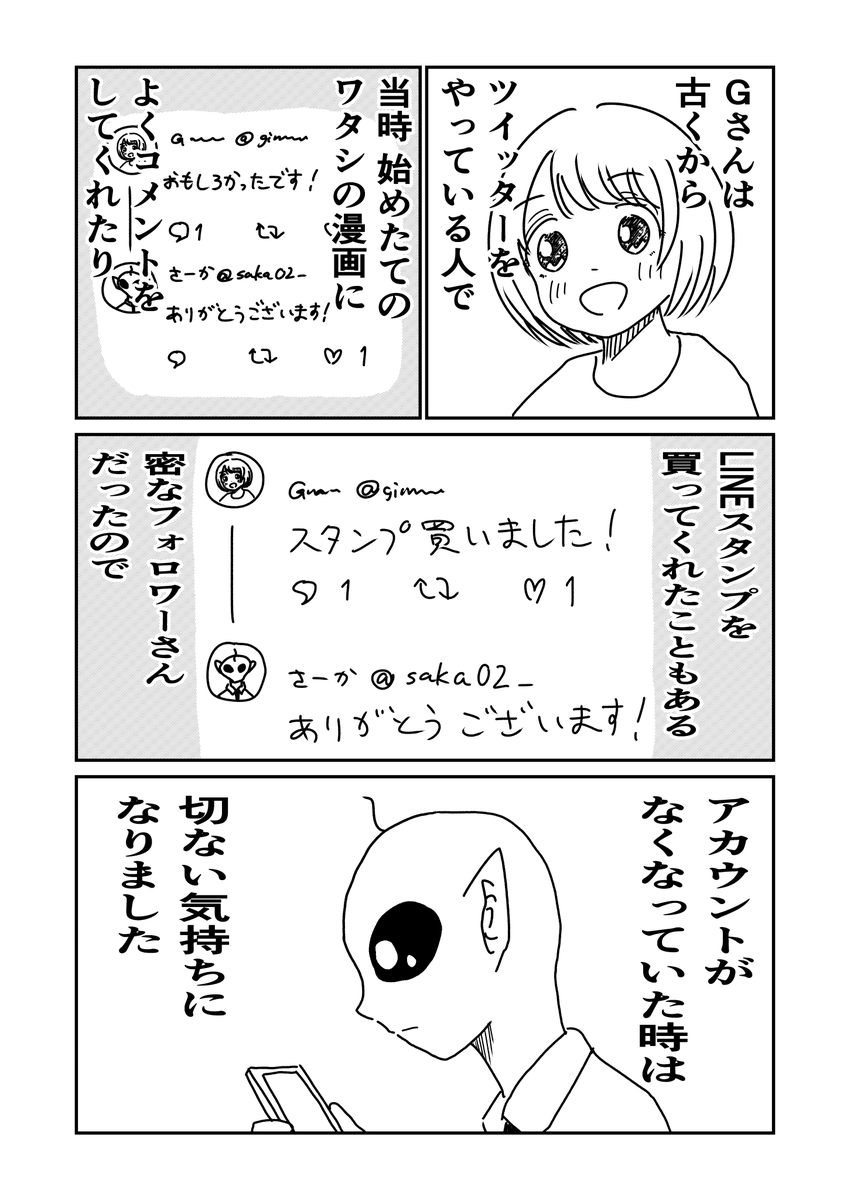 Gさんは
古くから
ツイッターを
やっている人で
当時 始めたての
ワタシの漫画に
よくコメントを
してくれたり
おもしろかったです!
1
さーか@saka02_
ありがとうございます!
1
LINEスタンプを
買ってくれたこともある
スタンプ買いました!
1 1
さーか @saka02_
ありがとうございます!
密なフォロワーさん
だったので
アカウントが
なくなっていた時は
切ない気持ちに
なりました